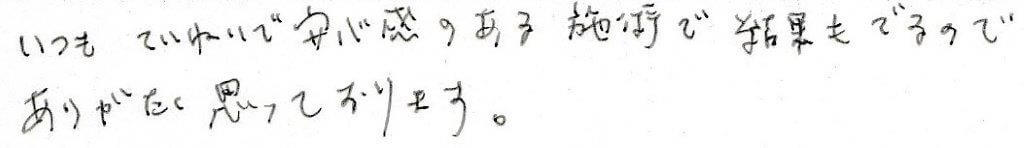 いつも ていねいで安心感のある施術で結果もでるので
ありがたく思っております。